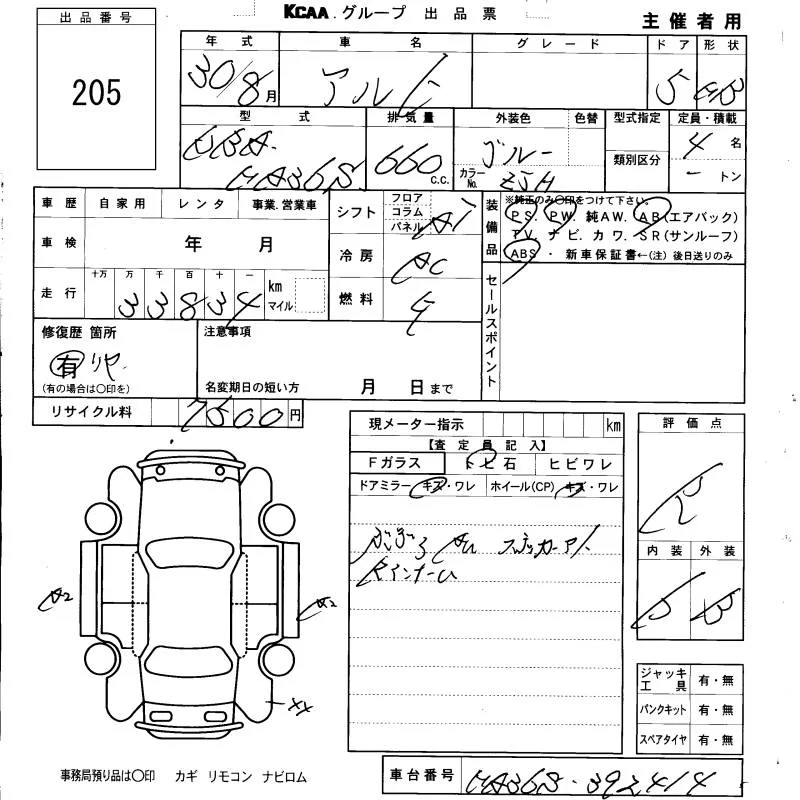 KCAA.グループ 出品票 主催者用
出品番号
205
年式 車名 グレード ドア 形状
30/8月 アルト 5 HB
型式 排気量 外装色 色替 型式指定 定員・積載
DBA- 660 c.c. ブルー 4名
HA36S カラーNo. ZJH 類別区分 - トン
車歴 自家用 レンタ 事業.営業車
車検 年 月
走行 十万 万 千 百 十 一 km マイル
33834
シフト フロア コラム パネル AT
冷房 AC
燃料 ガ
装備品 ※純正のみ○印をつけて下さい。
PS. PW. 純AW. AB(エアバック)
TV. ナビ. カワ. SR(サンルーフ)
ABS ・ 新車保証書←(注)後日送りのみ
セールスポイント
修復歴 箇所 注意事項
有 リヤ
(有の場合は○印を) 名変期日の短い方 月 日まで
リサイクル料 7500円
現メーター指示 km
【査定員記入】
Fガラス トビ石 ヒビワレ
ドアミラー キズ・ワレ ホイール(CP) キズ・ワレ
評価点
R
内装 外装
B
A2 A2
XX
ジャッキ工具 有・無
パンクキット 有・無
スペアタイヤ 有・無
事務局預り品は○印 カギ リモコン ナビロム
車台番号 HA36S-392414